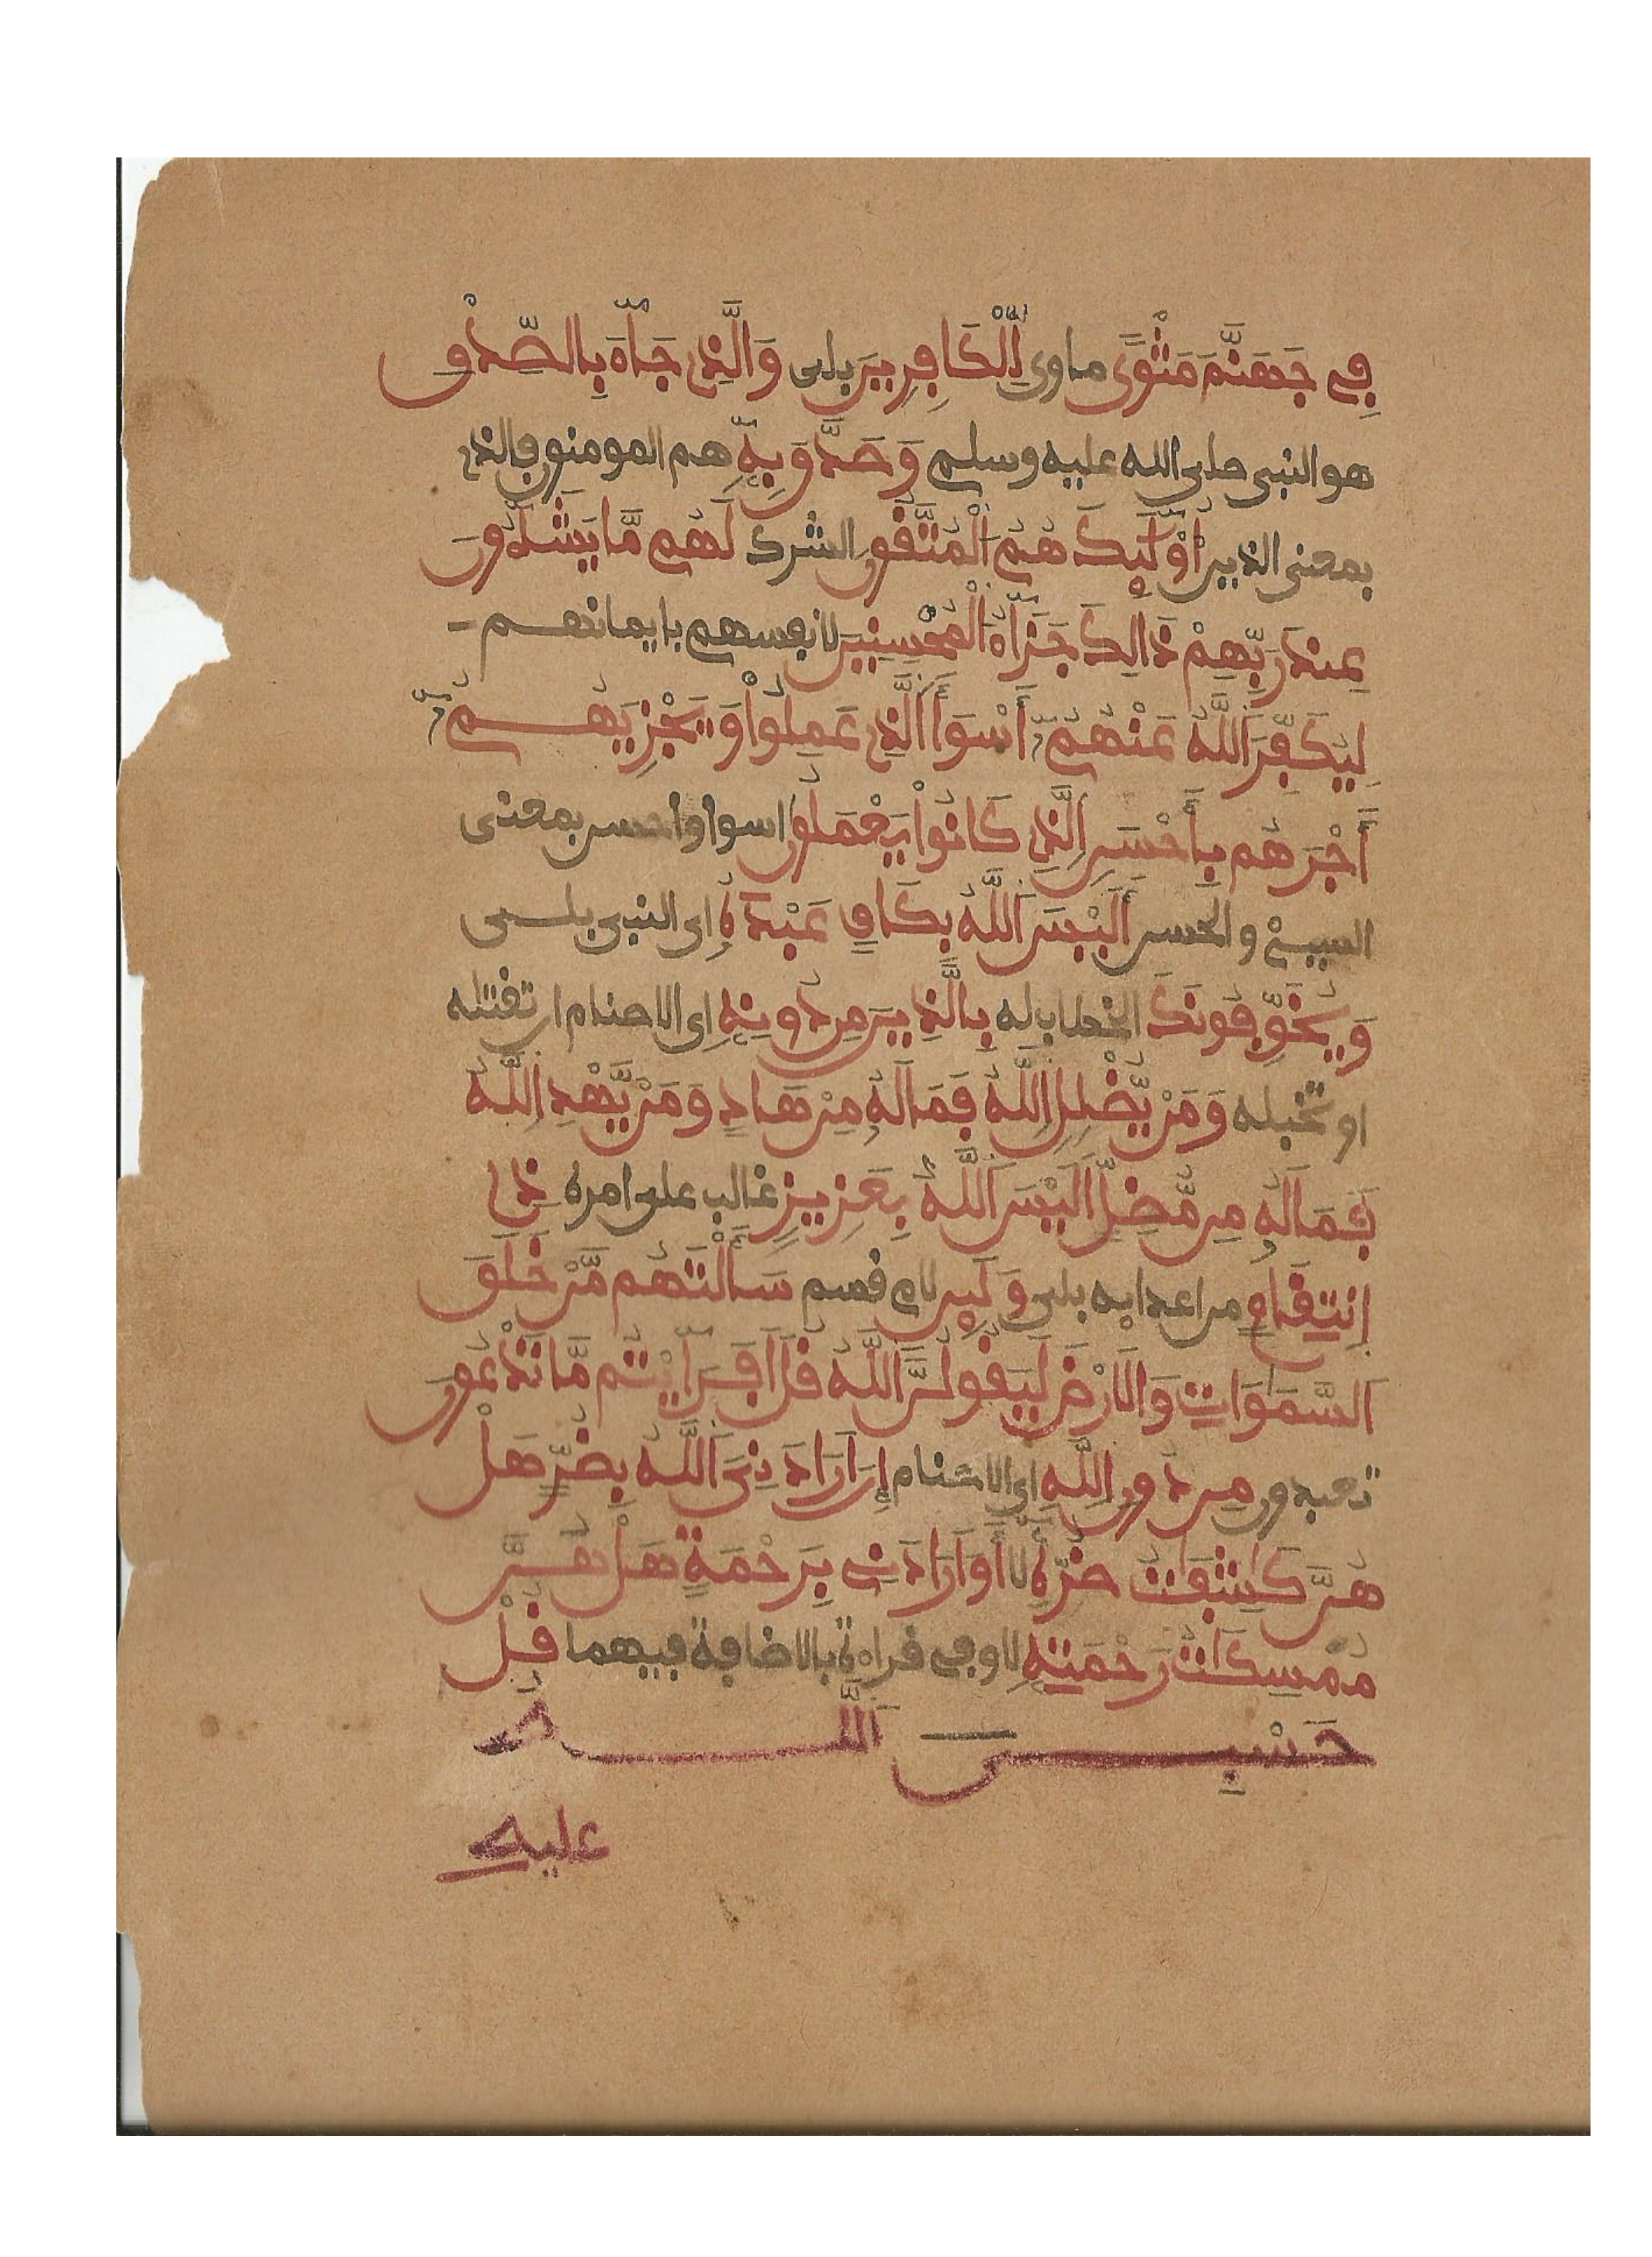 فِے جَهَنَّمَ مَثْوًى ماوى لِّلْكَافِرِينَ بلى وَالَّذِے جَآءَ بِالصِّدْقِ
هو النبى صلى الله عليه وسلم وَصَدَّقَ بِهِ هم المومنون فالذى
بمعنى الذين أُوْلَٰٓئِكَ هُمُ الْمُتَّقُونَ الشرك لَهُم مَّا يَشَآءُونَ
عِندَ رَبِّهِمْ ذَالِكَ جَزَآءُ الْمُحْسِنِينَ لانفسهم بايمانهم
لِيُكَفِّرَ اللَّهُ عَنْهُمُۥٓ أَسْوَأَ الَّذِے عَمِلُواْ وَيَجْزِيَهُمُۥٓ
أَجْرَهُم بِأَحْسَنِ الَّذِے كَانُواْ يَعْمَلُونَ اسوا واحسن بمعنى
السيىء والحسن أَلَيْسَ اللَّهُ بِكَافٍ عَبْدَهُ اى النبى بلى
وَيُخَوِّفُونَكَ الخطاب له بِالَّذِينَ مِن دُونِهِ اى الاصنام ان تقتله
او تخبله وَمَنْ يُّضْلِلِ اللَّهُ فَمَا لَهُ مِنْ هَادٍ وَمَنْ يَّهْدِ اللَّهُ
فَمَا لَهُ مِن مُّضِلٍّ أَلَيْسَ اللَّهُ بِعَزِيزٍ غالب على امره ذِے
اِنتِقَامٍ من اعدايه بلى وَلَئِن لام قسم سَأَلْتَهُم مَّنْ خَلَقَ
السَّمَٰوَاتِ وَالَارْضَ لَيَقُولُنَّ اللَّهُ قُلَ اَفَرَآيْتُم مَّا تَدْعُونَ
تعبدون مِن دُونِ اللَّهِ اى الاصنام إِنَ اَرَادَنِىَ اللَّهُ بِضُرٍّ هَلْ
هُنَّ كَاشِفَاتُ ضُرِّهِ لا أَوَ اَرَادَنِے بِرَحْمَةٍ هَلْ هُنَّ
مُمْسِكَاتُ رَحْمَتِهِ لا وفى قراءة بالاضافة فيهما قُلْ
حَسْبِىَ اللَّهُ
عليه